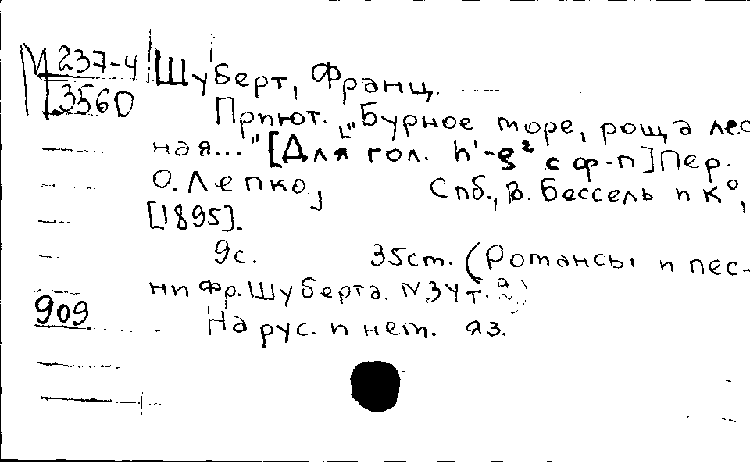 М 237-4
356D
Шуберт, Франц.
Приют. „Бурное море, роща лес-
ная..." [Для гол. h¹-g² с ф-п] Пер.
О. Лепко,   Спб., В. Бессель и К°,
[1895].
9с.   35ст. (Романсы и пес-
ни Фр. Шуберта. N34 т. 2)
909
На рус. и нем. яз.